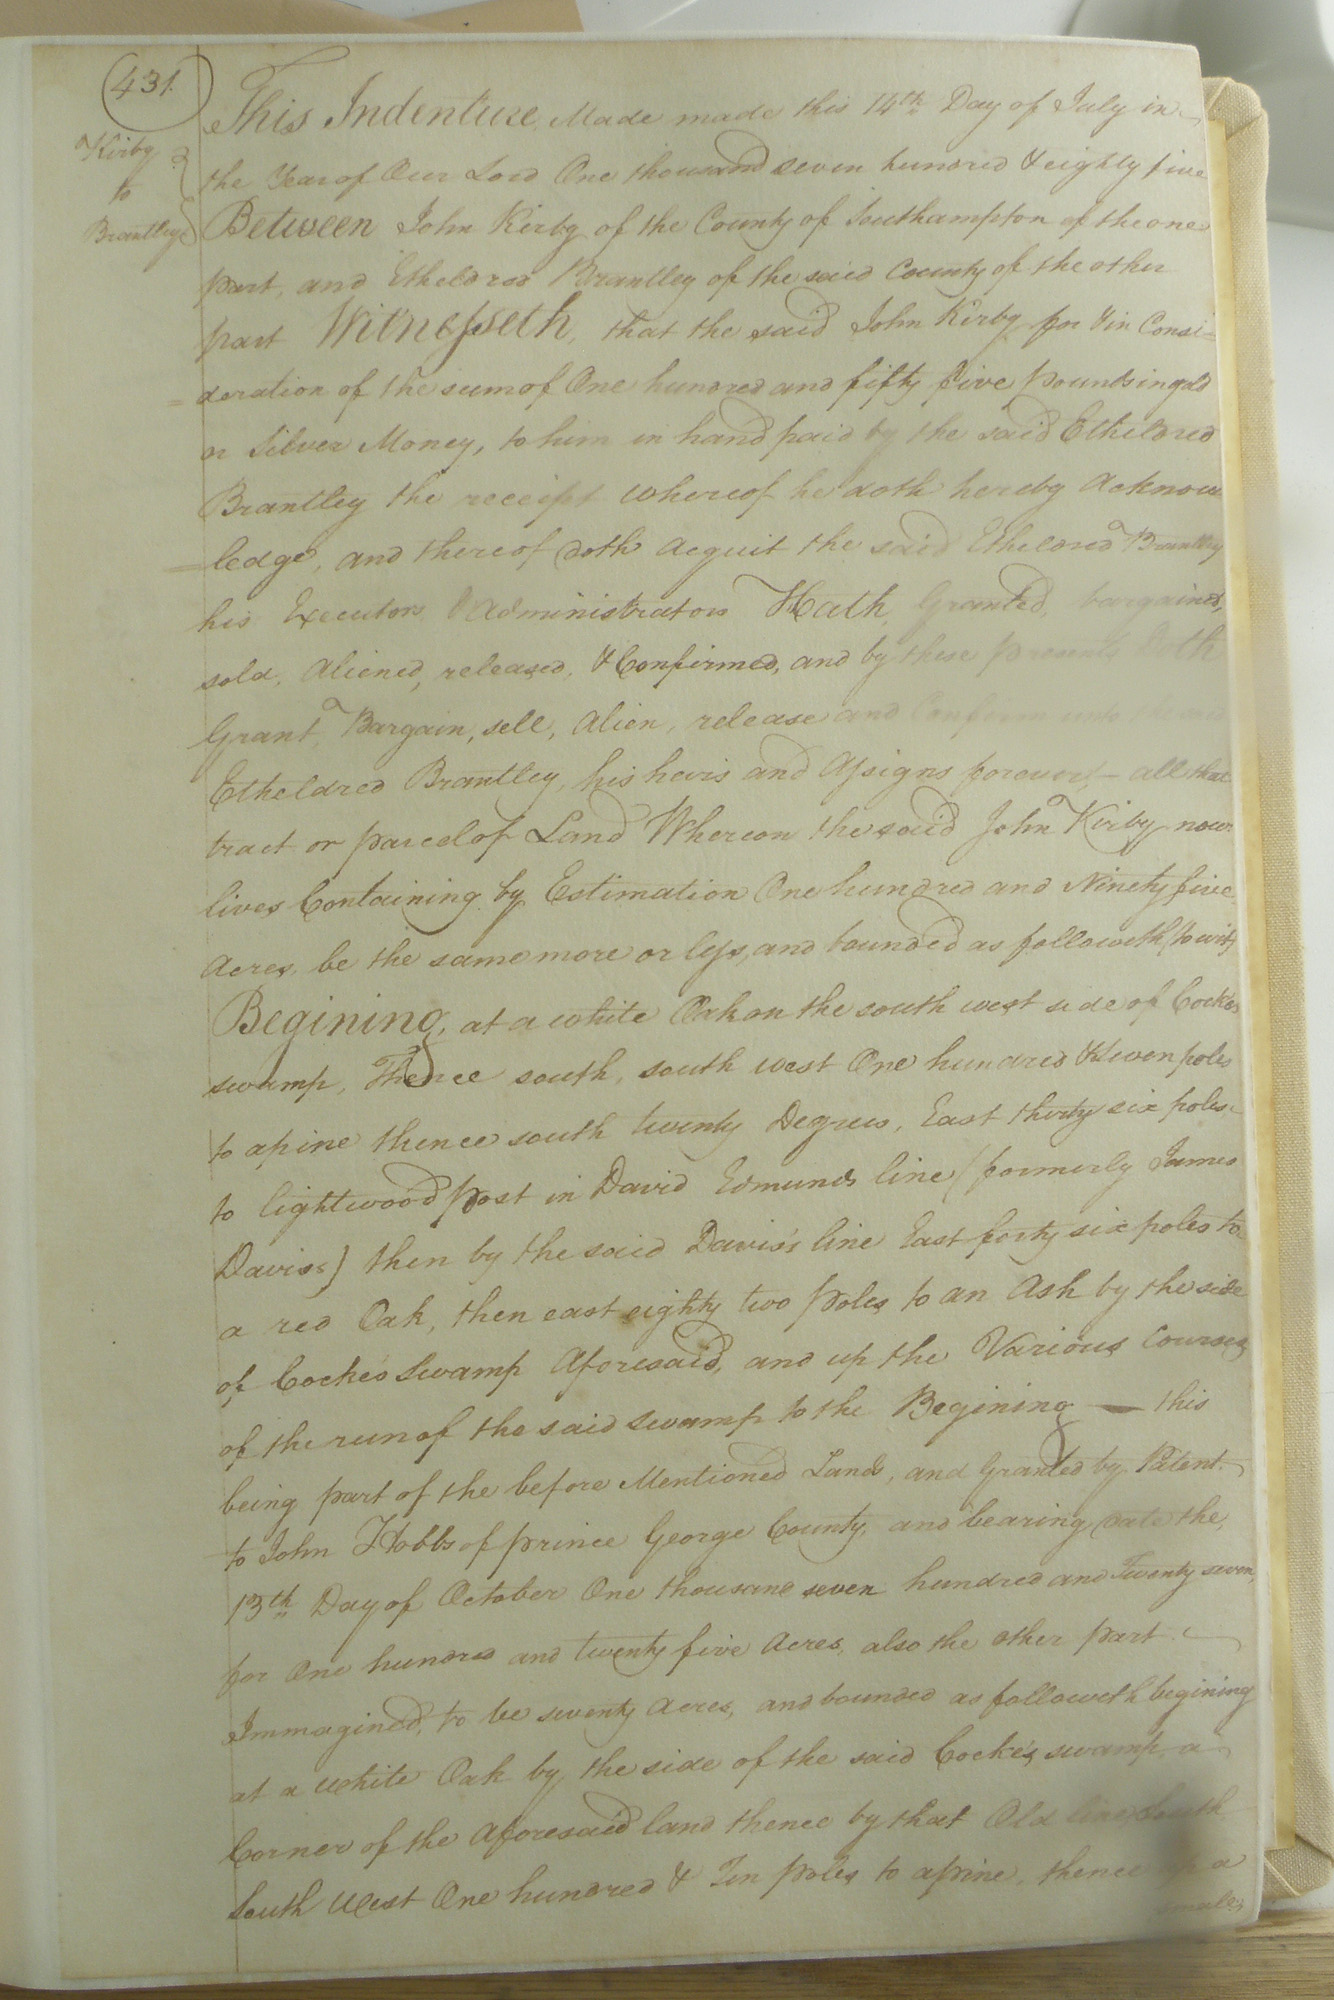 431.
Kirby
to
Brantley
This Indenture Made made this 14th Day of July in
the Year of Our Lord One thousand seven hundred & eighty five
Between John Kirby of the County of Southampton of the one
part, and Etheldred Brantley of the said County of the other
part Witnesseth, that the said John Kirby for & in Consi-
=deration of the sum of One hundred and fifty five pounds in gold
or Silver Money, to him in hand paid by the said Etheldred
Brantley the receipt whereof he doth hereby Acknow
-ledge, and thereof doth acquit the said Etheldred Brantley
his Executors & Administrators Hath Granted, bargained,
sold, Aliened, released, & Confirmed, and by these presents Doth
Grant, Bargain, sell, Alien, release and Confirm unto
Etheldred Brantley, his heris and Assigns forever,- all that
tract or parcel of Land Whereon the said John Kirby now
lives Containing by Estimation One hundred and Ninety five
Acres, be the same more or less, and bounded as followeth (to wit)
Begining, at a white Oak on the south west side of Cocke's
swamp, Thence south, south west One hundred & poles
to a pine thence south twenty Degrees, East thirty six poles
to lightwood post in David Edmunds line (formerly James
Davis's) then by the said Davis's line East forty six poles to
a red Oak, then east eighty two poles to an Ash by the side
of Cocke's Swamp Aforesaid, and up the Various Courses
of the run of the said swamp to the Begining — this
being part of the before Mentioned Lands, and Granted by Patent
to John Hobbs of prince George County, and bearing date the,
13th Day of October One thousand seven hundred and Twenty seven,
for One hundred and twenty five Acres, also the other part
Immagined, to be seventy Acres, and bounded as followeth begining
at a white Oak by the side of the said Cocke's swamp, a
Corner of the Aforesaid land thence by that Old line South
South West One hundred & Ten poles to a pine, thence up a